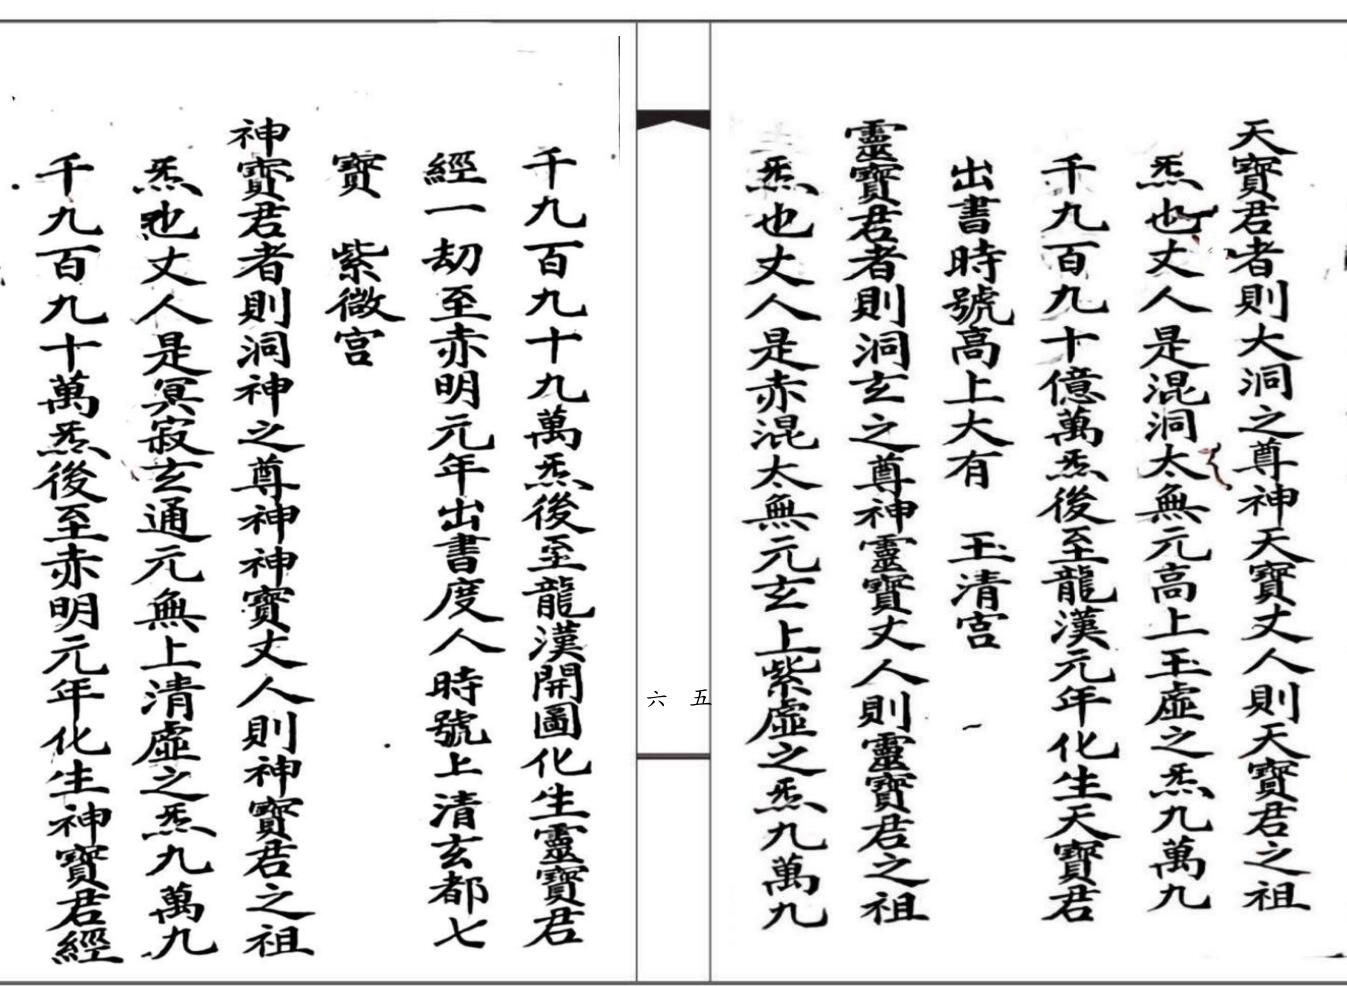 天寳君者則大洞之尊神天寳丈人則天寳君之祖
炁也丈人是混洞太無元高上玉虛之炁九萬九
千九百九十億萬炁後至龍漢元年化生天寳君
出書時號高上大有　玉清宮
靈寳君者則洞玄之尊神靈寳丈人則靈寳君之祖
炁也丈人是赤混太無元玄上紫虛之炁九萬九
五
六
千九百九十九萬炁後至龍漢開圖化生靈寳君
經一劫至赤明元年出書度人時號上清玄都七
寳　紫微宮
神寳君者則洞神之尊神神寳丈人則神寳君之祖
炁也丈人是冥寂玄通元無上清虛之炁九萬九
千九百九十萬炁後至赤明元年化生神寳君經